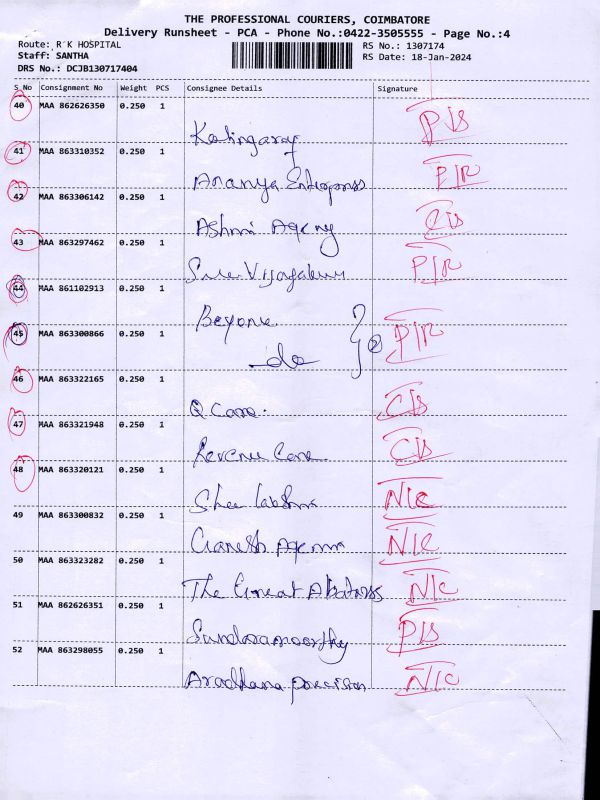 THE PROFESSIONAL COURIERS, COIMBATORE
Delivery Runsheet - PCA - Phone No.:0422-3505555 - Page No.:4
Route: R K HOSPITAL
RS No.: 1307174
Staff: SANTHA
RS Date: 18-Jan-2024
DRS No.: DCJB130717404
S No Consignment No Weight PCS Consignee Details Signature
40 MAA 862626350 0.250 1
Kalingaray P/S
41 MAA 863310352 0.250 1
Ananya Enterprises P/R
42 MAA 863306142 0.250 1
Ashmi Agency C/S
43 MAA 863297462 0.250 1
P/R
44 MAA 861102913 0.250 1
Beyone
45 MAA 863300866 0.250 1
do } 2 P/R
46 MAA 863322165 0.250 1
Q Care. C/S
47 MAA 863321948 0.250 1
Revenue Care C/S
48 MAA 863320121 0.250 1
Shee Lakshmi N/C
49 MAA 863300832 0.250 1
Ganesh N/C
50 MAA 863323282 0.250 1
The Great Albatross N/C
51 MAA 862626351 0.250 1
Sundaramoorthy P/S
52 MAA 863298055 0.250 1
Aradhana precision N/C